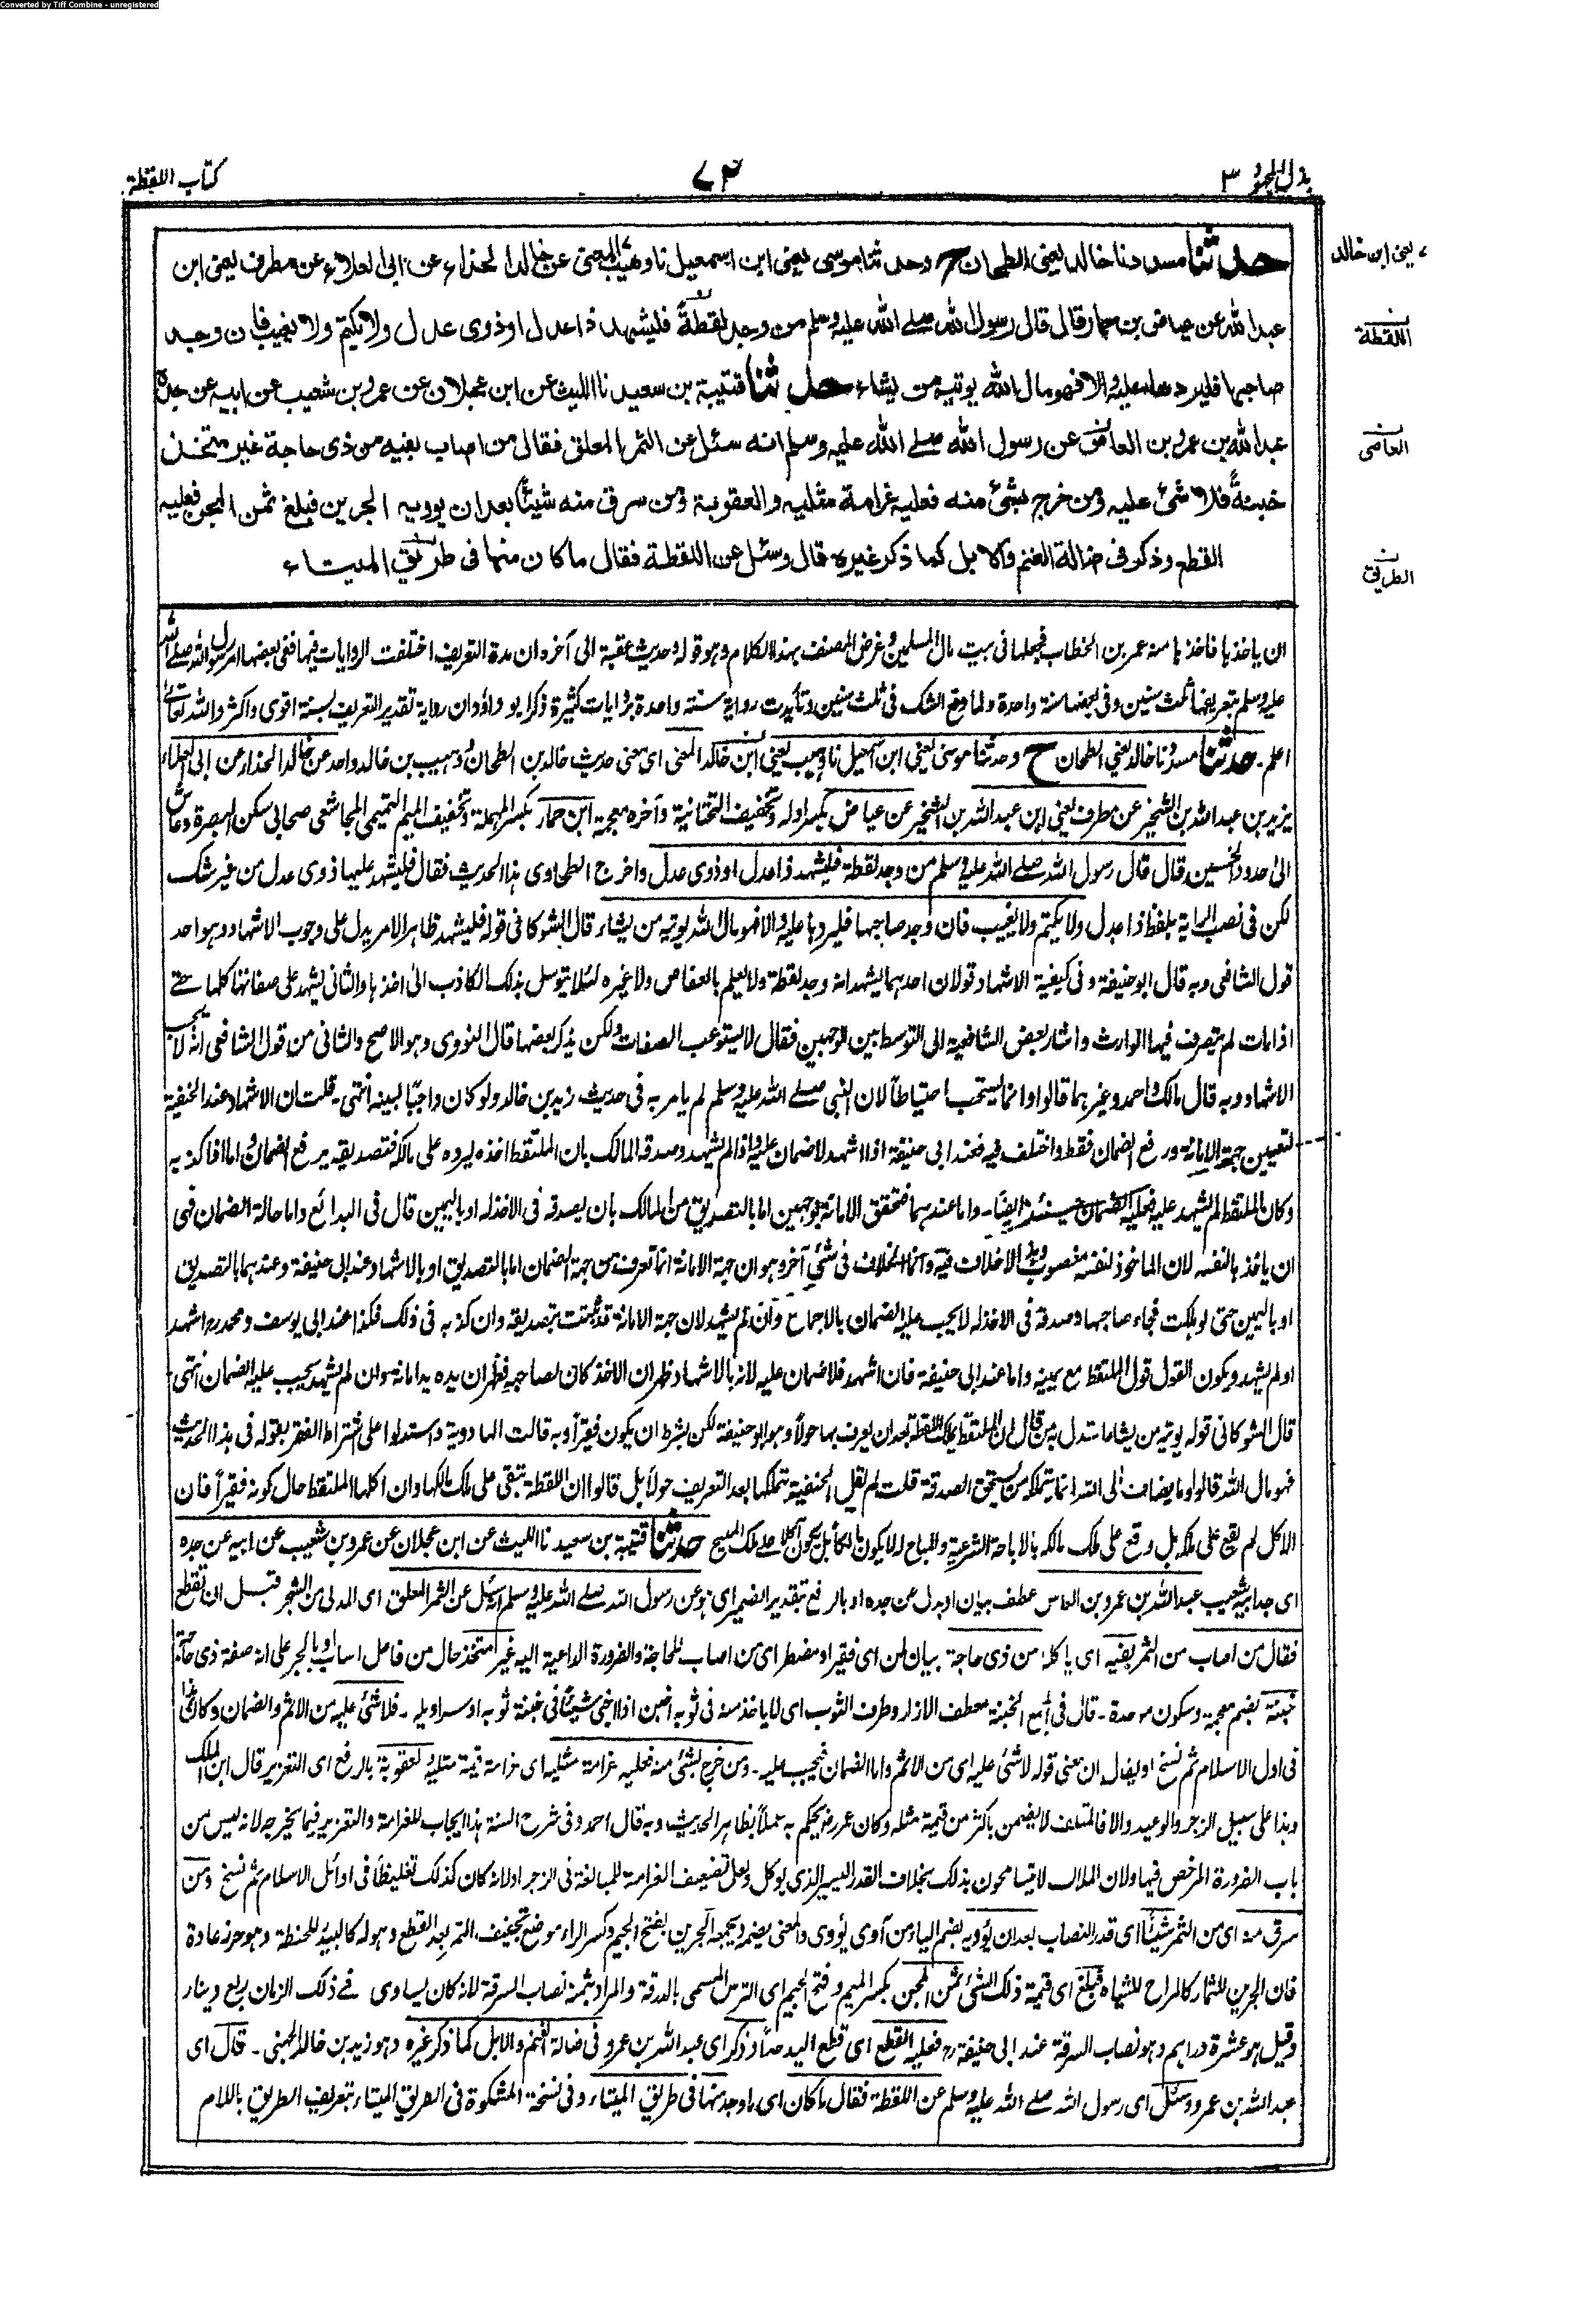 Converted by Tiff Combine - unregistered
بذل المجهود ٣
٧٤
كتاب اللقطة
حدثنا مسدد نا خالد يعنى الطحان ح وحدثنا موسى يعنى ابن اسمعيل نا وهيب المعنى عن خالد الحذاء عن ابى العلاء عن مطرف يعنى ابن
ر يعنى ابن خالد
عبد الله عن عياض بن حمار قال قال رسول الله صلى الله عليه وسلم من وجد لقطة فليشهد ذا عدل او ذوى عدل ولا يكتم ولا يغيب فان وجد
ن اللقطة
صاحبها فليردها عليه والا فهو مال الله يوتيه من يشاء حدثنا قتيبة بن سعيد نا الليث عن ابن عجلان عن عمرو بن شعيب عن ابيه عن جده
عبد الله بن عمرو بن العاص عن رسول الله صلى الله عليه وسلم انه سئل عن الثمر المعلق فقال من اصاب بفيه من ذى حاجة غير متخذ
ن العاصى
خبنة فلا شئ عليه ومن خرج بشئ منه فعليه غرامة مثليه والعقوبة ومن سرق منه شيئا بعد ان يوويه الجرين فبلغ ثمن المجن فعليه
القطع وذكر فى ضالة الغنم والابل كما ذكر غيره قال وسئل عن اللقطة فقال ما كان منها فى طريق الميتاء
ن الطريق
ان ياخذها فاخذها منه عمر بن الخطاب فجعلها فى بيت مال المسلمين وغرض المصنف بهذا الكلام وهو قوله وحديث عقبة الى آخره ان مدة التعريف اختلفت الروايات فيها ففى بعضها امر رسول الله صلى الله
عليه وسلم بتعريفها ثلث سنين وفى بعضها سنة واحدة ولما وقع الشك فى ثلث سنين وتأيدت رواية سنة واحدة بروايات كثيرة ذكر ابو داؤد ان رواية تقدير التعريف بسنة اقوى واكثر والله تعالى
اعلم۔ حدثنا مسدد نا خالد يعنى الطحان ح وحدثنا موسى يعنى ابن اسمعيل نا وهيب يعنى ابن خالد المعنى اى معنى حديث خالد بن الطحان وهيب بن خالد واحد عن خالد الحذاء عن ابى العلاء
يزيد بن عبد الله بن الشخير عن مطرف يعنى ابن عبد الله بن الشخير عن عياض بكسر اوله وتخفيف التحتانية وآخره معجمة ابن حمار بكسر المهملة وتخفيف الميم التميمى المجاشعى صحابى سكن البصرة وعاش
الى حدود الخمسين قال قال رسول الله صلى الله عليه وسلم من وجد لقطة فليشهد ذا عدل او ذوى عدل واخرج الطحاوى هذا الحديث فقال فليشهد عليها ذوى عدل من غير شك
لكن فى نصب الراية بلفظ ذا عدل ولا يكتم ولا يغيب فان وجد صاحبها فليردها عليه والا فهو مال الله يوتيه من يشاء قال الشوكانى قوله فليشهد ظاهر الامر يدل على وجوب الاشهاد وهو احد
قول الشافعى وبه قال ابو حنيفة وفى كيفية الاشهاد قولان احدهما يشهد انه وجد لقطة ولا يعلم بالعفاص ولا غيره لئلا يتوسل بذلك الكاذب الى اخذها والثانى يشهد على صفاتها كلها حتى
اذا مات لم يتصرف فيها الوارث واشار بعض الشافعية الى التوسط بين الوجهين فقال لا يستوعب الصفات ولكن يذكر بعضها قال النووى وهو الاصح والثانى من قول الشافعى انه لا يجب
الاشهاد وبه قال مالك واحمد وغيرهما قالوا وانما يستحب احتياطا لان النبى صلى الله عليه وسلم لم يامر به فى حديث زيد بن خالد ولو كان واجبا لبينه انتهى۔ قلت ان الاشهاد عند الحنفية
لتعيين جهة الامانة ورفع الضمان فقط واختلف فيه فعند ابى حنيفة اذا اشهد لا ضمان عليه واذا لم يشهد وصدقه المالك بان الملتقط اخذه ليرده على مالكه فتصديقه يرفع الضمان واما اذا كذبه
وكان الملتقط لم يشهد عليه فعليه الضمان حينئذ ايضا۔ واما عندهما فتحقق الامانة بوجهين اما بالتصديق من المالك بان يصدقه فى الاخذ له او باليمين قال فى البدائع واما حالة الضمان فهى
ان ياخذها لنفسه لان الماخوذ لنفسه مغصوب وهذا لا خلاف فيه وانما الخلاف فى شئ آخر وهو ان جهة الامانة انما تعرف من جهة الضمان اما بالتصديق او بالاشهاد عند ابى حنيفة وعندهما بالتصديق
او باليمين حتى لو هلكت فجاء صاحبها وصدقه فى الاخذ له لا يجب عليه الضمان بالاجماع وان لم يشهد لان جهة الامانة قد ثبتت بتصديقه وان كذبه فى ذلك فكذا عند ابى يوسف ومحمد اشهد
او لم يشهد ويكون القول قول الملتقط مع يمينه واما عند ابى حنيفة فان اشهد فلا ضمان عليه لانه بالاشهاد ظهر ان الاخذ كان لصاحبه فظهر ان يده يد امانة وان لم يشهد يجب عليه الضمان انتهى
قال الشوكانى قوله يوتيه من يشاء استدل به من قال ان الملتقط يملك اللقطة بعد ان يعرف بها حولا وهو ابو حنيفة لكن بشرط ان يكون فقيرا وبه قالت الهادوية واستدلوا على اشتراط الفقر بقوله فى هذا الحديث
فهو مال الله قالوا وما يضاف الى الله انما يتملكه من يستحق الصدقة قلت لم يقل الحنفية بتملكها بعد التعريف حولا بل قالوا ان اللقطة تبقى على ملك مالكها وان اكلها الملتقط حال كونه فقيرا فان
الاكل لم يقع على ملكه بل وقع على ملك مالكه بالاباحة الشرعية والمباح له لا يكون مالكا بل يكون آكلا على ملك المبيح حدثنا قتيبة بن سعيد نا الليث عن ابن عجلان عن عمرو بن شعيب عن ابيه عن جده
اى جد ابيه شعيب عبد الله بن عمرو بن العاص عطف بيان او بدل عن جده او بالرفع بتقدير الضمير اى هو عن رسول الله صلى الله عليه وسلم انه سئل عن الثمر المعلق اى المدلى من الشجر قبل ان تقطع
فقال من اصاب من الثمر بفيه اى ياكله من ذى حاجة بيان لمن اى فقير او مضطر اى من اصاب للحاجة والضرورة الداعية اليه غير متخذ حال من فاعل اصاب او بالجر على انه صفة ذى حاجة
خبنة بضم معجمة وسكون موحدة۔ قال فى المجمع الخبنة معطف الازار وطرف الثوب اى لا ياخذ منه فى ثوبه اخبن اذا اخبى شيئا فى خبنة ثوبه او سراويله۔ فلا شئ عليه من الاثم والضمان وكان هذا
فى اول الاسلام ثم نسخ او يقال ان معنى قوله لا شئ عليه اى من الاثم واما الضمان فيجب عليه۔ ومن خرج بشئ منه فعليه غرامة مثليه اى غرامة قيمة مثليه والعقوبة بالرفع اى التعزير قال ابن الملك
وهذا على سبيل الزجر والوعيد والا فالمتلف لا يضمن باكثر من قيمة مثله وكان عمر يحكم به عملا بظاهر الحديث وبه قال احمد وفى شرح السنة هذا ايجاب للغرامة والتعزير فيما يخرجه لانه ليس من
باب الضرورة المرخص فيها ولان الملاك لا يتسامحون بذلك بخلاف القدر اليسير الذى يوكل ولعل تضعيف الغرامة للمبالغة فى الزجر او لانه كان كذلك تغليظا فى اوائل الاسلام ثم نسخ ومن
سرق منه اى من الثمر شيئا اى قدر النصاب بعد ان يؤويه بضم الياء من آوى يؤوى والمعنى يضمه ويجمعه الجرين بفتح الجيم وكسر الراء موضع تجفيف التمر بعد القطع وهو له كالبيدر للحنطة وهو حرز عادة
فان الجرين للثمار كالمراح للشياه فبلغ اى قيمة ذلك الشئ ثمن المجن بكسر الميم وفتح الجيم اى الترس المسمى بالدرقة والمراد بثمنه نصاب السرقة لانه كان يساوى فى ذلك الزمان ربع دينار
وقيل هو عشرة دراهم وهو نصاب السرقة عند ابى حنيفة رح فعليه القطع اى قطع اليد حدا وذكر اى عبد الله بن عمرو فى ضالة الغنم والابل كما ذكر غيره وهو زيد بن خالد الجهنى۔ قال اى
عبد الله بن عمرو وسئل اى رسول الله صلى الله عليه وسلم عن اللقطة فقال ما كان اى ما وجد منها فى طريق الميتاء وفى نسخة المشكوة فى الطريق الميتاء بتعريف الطريق باللام